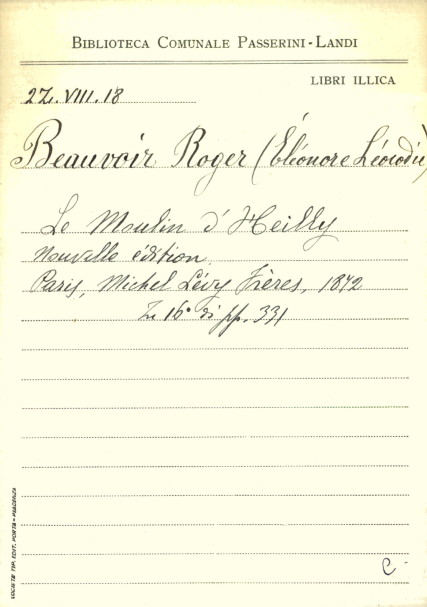 BIBLIOTECA COMUNALE PASSERINI-LANDI
LIBRI ILLICA
2Z. VIII. 18
Beauvoir Roger (Éléonore Léocadie)
Le Moulin d'Heilly
Nouvelle édition.
Paris, Michel Lévy Frères, 1872
Z. 16° di pp. 331
C
SOCIETÀ TIP. EDIT. PORTA - PIACENZA